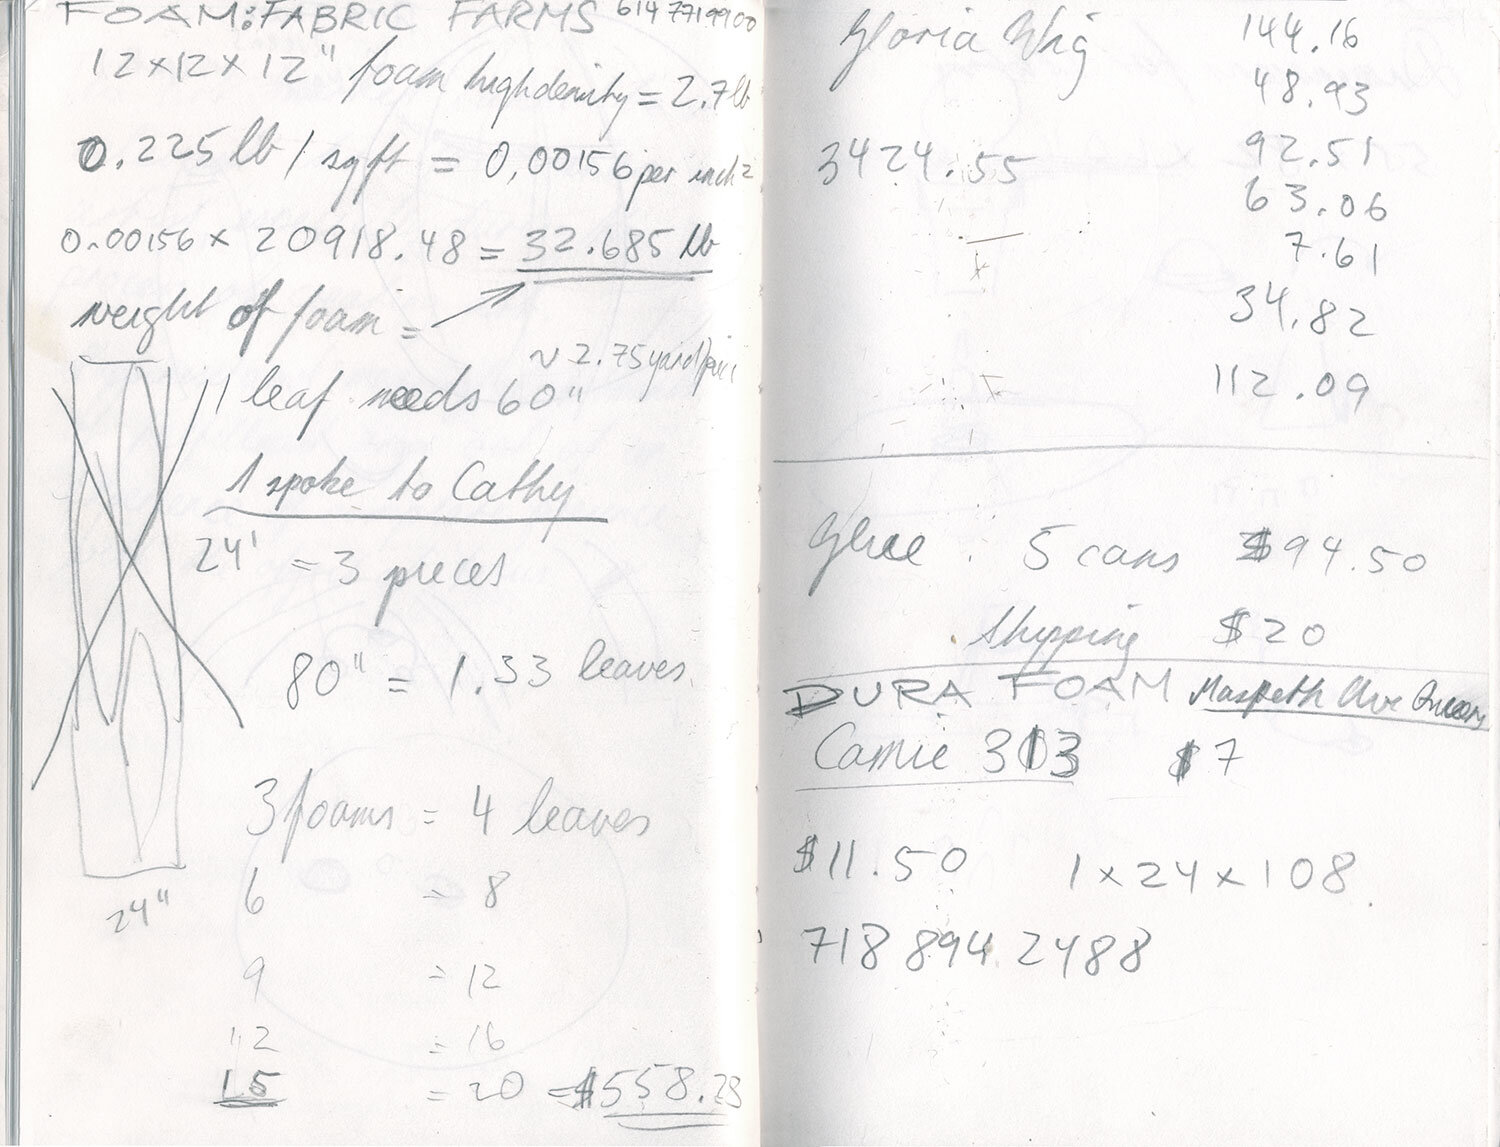 FOAM: FABRIC FARMS 614 7719900
12x12x12" foam high density = 2.7 lb
0.225 lb / sqft = 0,00156 per inch2
0.00156 x 20918.48 = 32.685 lb
weight of foam =
~ 2.75 yard
1 leaf needs 60"
I spoke to Cathy
24' = 3 pieces
80" = 1.33 leaves.
3 foams = 4 leaves
6 = 8
9 = 12
12 = 16
15 = 20 = $558.23
24"
Gloria 144.16
48.93
3424.55 92.51
63.06
7.61
34.82
112.09
Glue. 5 cans $94.50
Shipping $20
DURA FOAM Maspeth Ave Queens
Camie 313 $7
$11.50 1x24x108.
718 894 2488